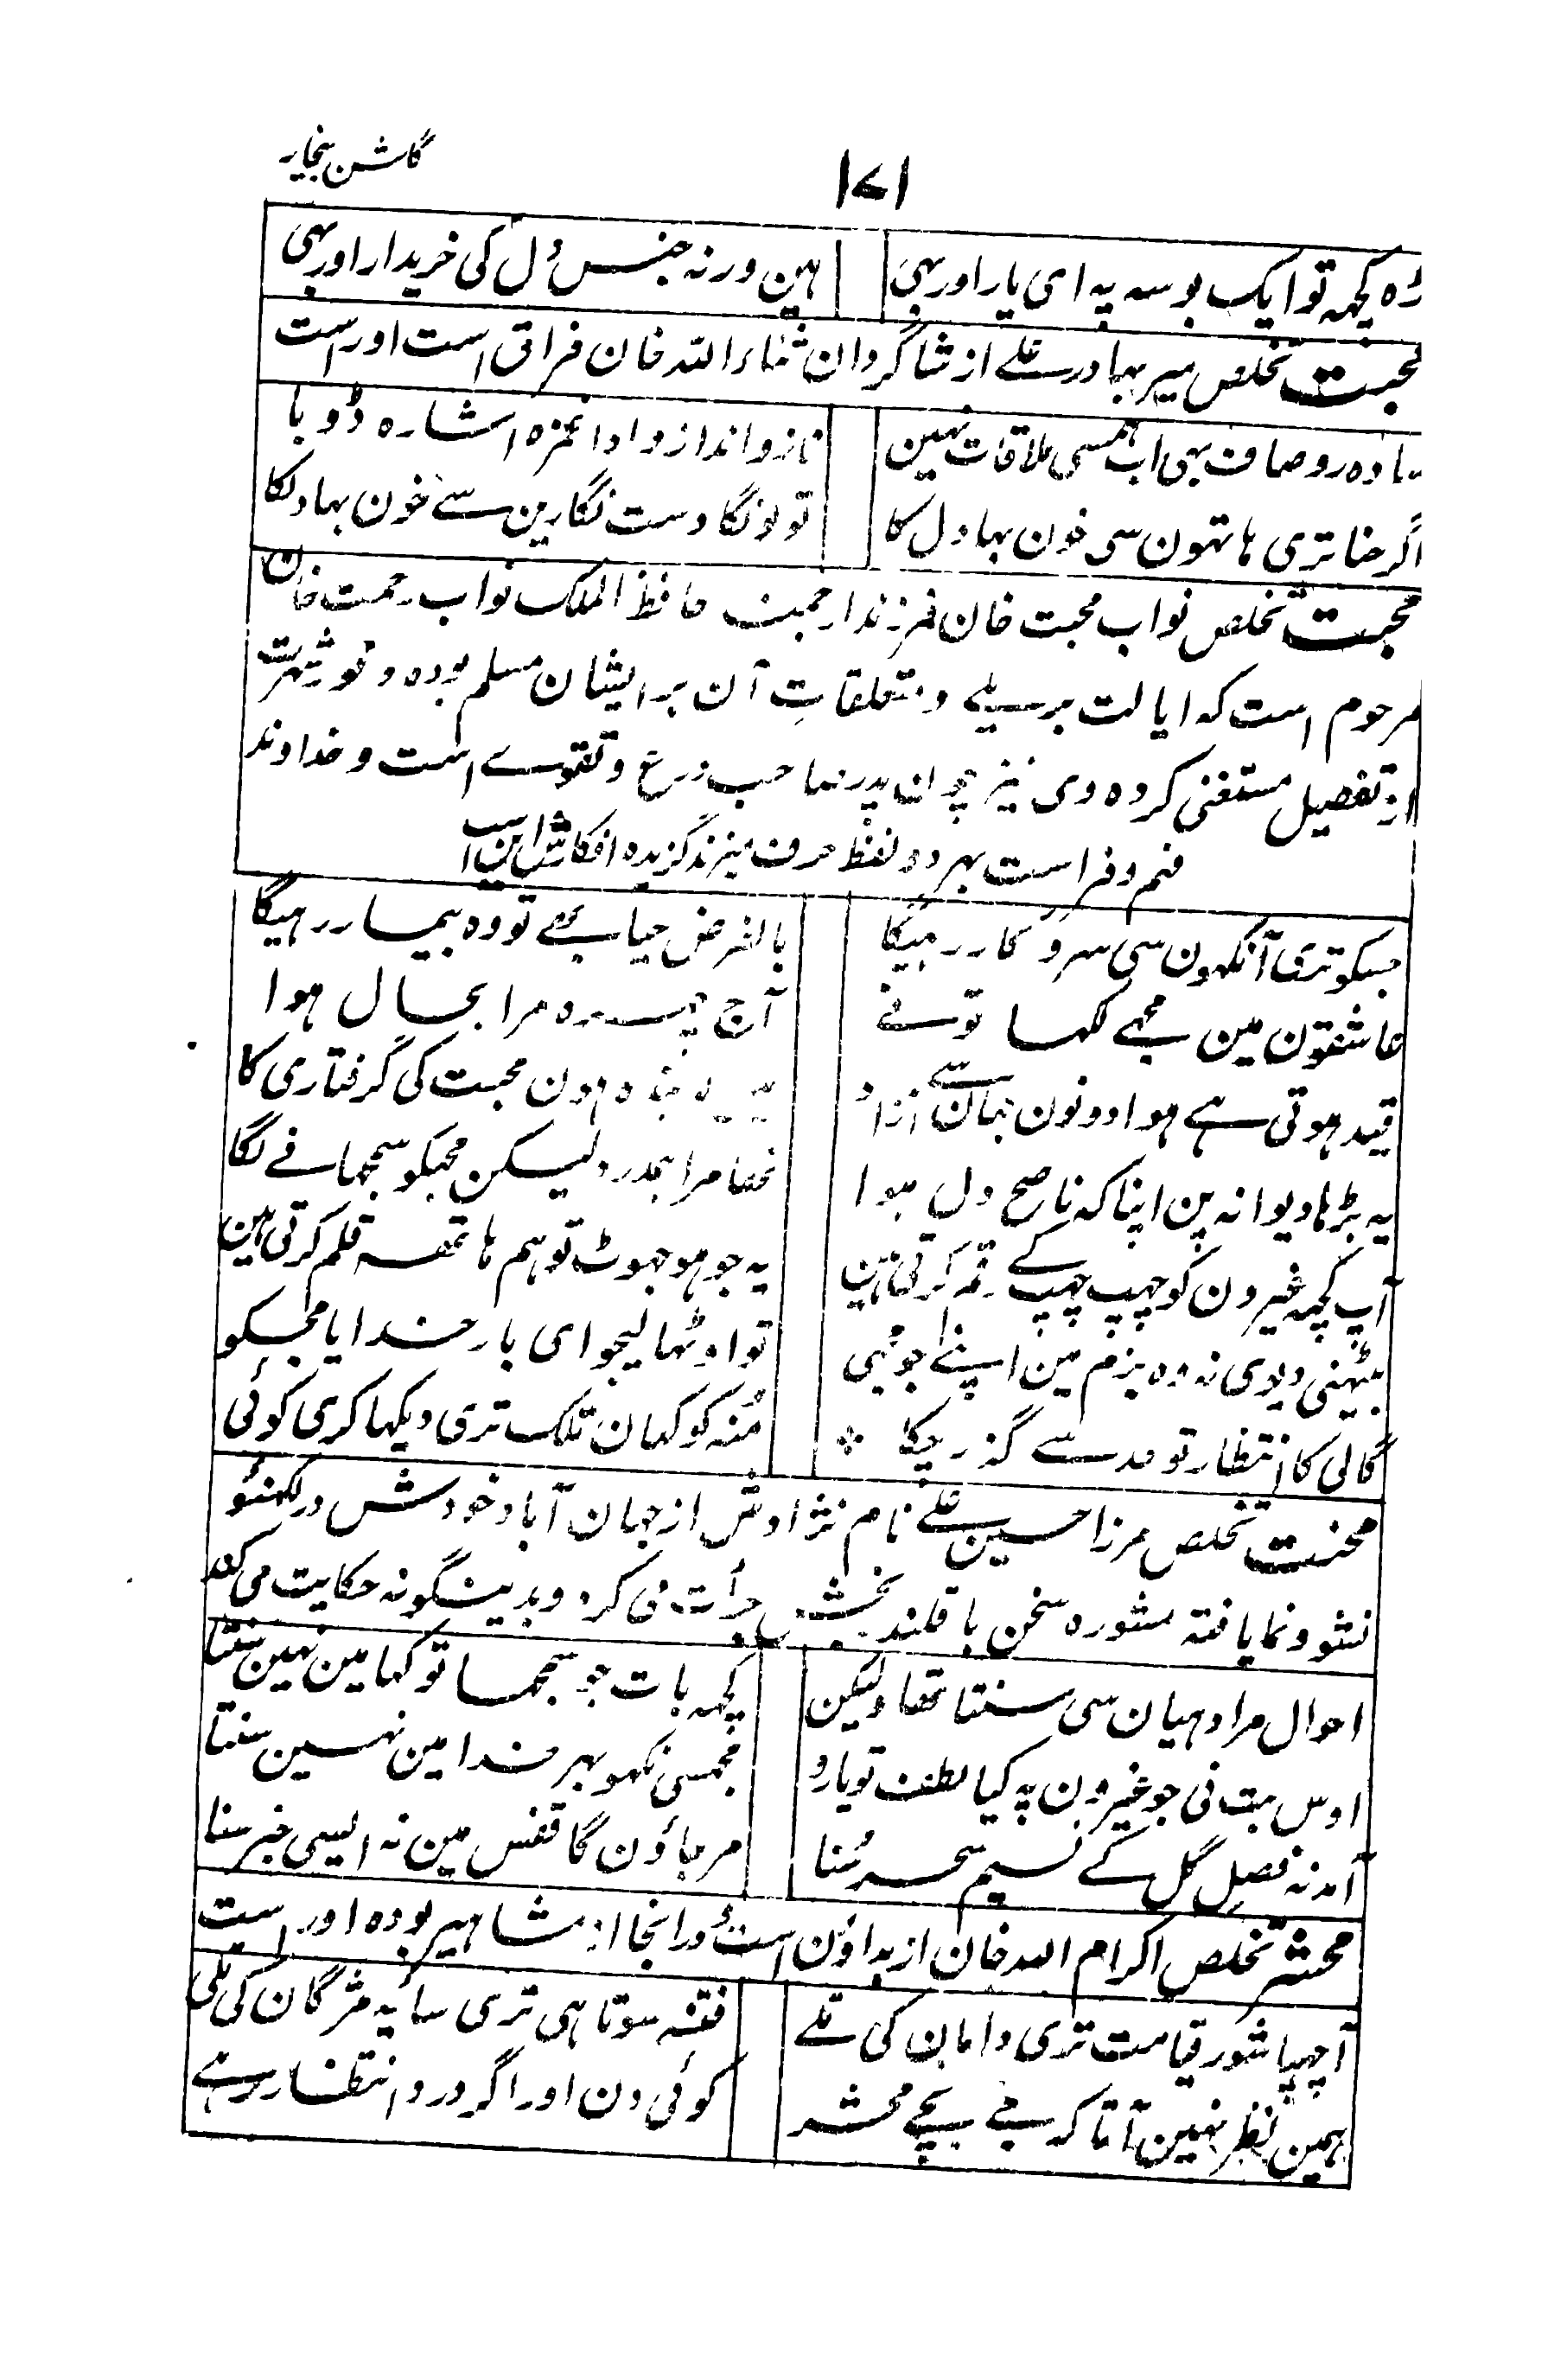 ۱۷۱
گلشن بیخار
کچہ تو ایک بوسہ پہ ای یار اور بہی ہین ورنہ جنس دل کی خریدار اور بہی
محبت تخلص میر بہادر علے از شاگردان ثناء اللہ خان فراق است اوراست
سادہ رو صاف بہی اب ہمسی ملاقات نہین ناز و انداز و ادا غمزہ اشارہ ڈوبا
اگر حنا تری ہاتہون سی خون بہا دل کا تو لونگا دست نگارین سے خون بہا دلکا
محبت تخلص نواب محبت خان فرزند ارجمند حافظ الملک نواب رحمت خان
مرحوم است کہ ایالت بریلے و متعلقاتِ آن بر ایشان مسلم بودہ و شہرت
از تفصیل مستغنی کردہ وی نیز چون پدر صاحب ورع و تقوے است و خداوند
فہم و فراست بہر دو لفظ حرف میزند گزیدہ افکارش این است
جسکو تری آنکہون سی سروکار رہیگا بالفرض جیا بہے تو وہ بیمار رہیگا
عاشقون مین مجہے لکہا تونے آج چہرہ مرا بحال ہوا
قید ہوتی ہے ہوا دونون جہان سے آزاد بندہ ہون محبت کی گرفتاری کا
یہ بڑہا دیوانہ پن اپنا کہ ناصح دل ہوا تھا مرا ہمدرد لیکن مجہکو سمجہانے لگا
آپ کچہ غیرون کو چہپ چہپ کے رقم کرتی ہین یہ جو ہو جہوٹ تو ہم ہاتھہ قلم کرتی ہین
بیٹہنی دیوی نہ وہ بزم مین اپنے جو مجہی تو اوٹہا لیجو ای بار خدایا مجہکو
گالی کا انتظار تو حد سے گذر چکا مُنہ کو کہان تلک تری دیکہا کری کوئی
محنت تخلص مرزا حسین علے نام نژادش از جہان آباد خودش در لکہنؤ
نشو و نما یافتہ مشورہ سخن با قلندر بخش جرأت می کرد و بدینگونہ حکایت می کند
احوال مرا دہیان سی سنتا تھا ولیکن کچہہ بات جو سمجہا تو کہا مین نہین سنتا
اوس بت نی جو غیرون پہ کیا لطف تو یارو مجہسی نکہو بہر خدا مین نہین سنتا
آمد نہ فصلِ گل کے نسیم سحر سُنا مرجاؤن گا قفس مین نہ ایسی خبر سنا
محشر تخلص اکرام اللہ خان از بداؤن است و در انجا از مشاہیر بودہ اوراست
آ چہپا شور قیامت تری دامان کی تلے فتنہ سوتا ہی تری سایہ مژگان کی تلی
ہمین نظر نہین آتا کہ جے بچے محشر کوئی دن اور اگر درد انتظار رہے